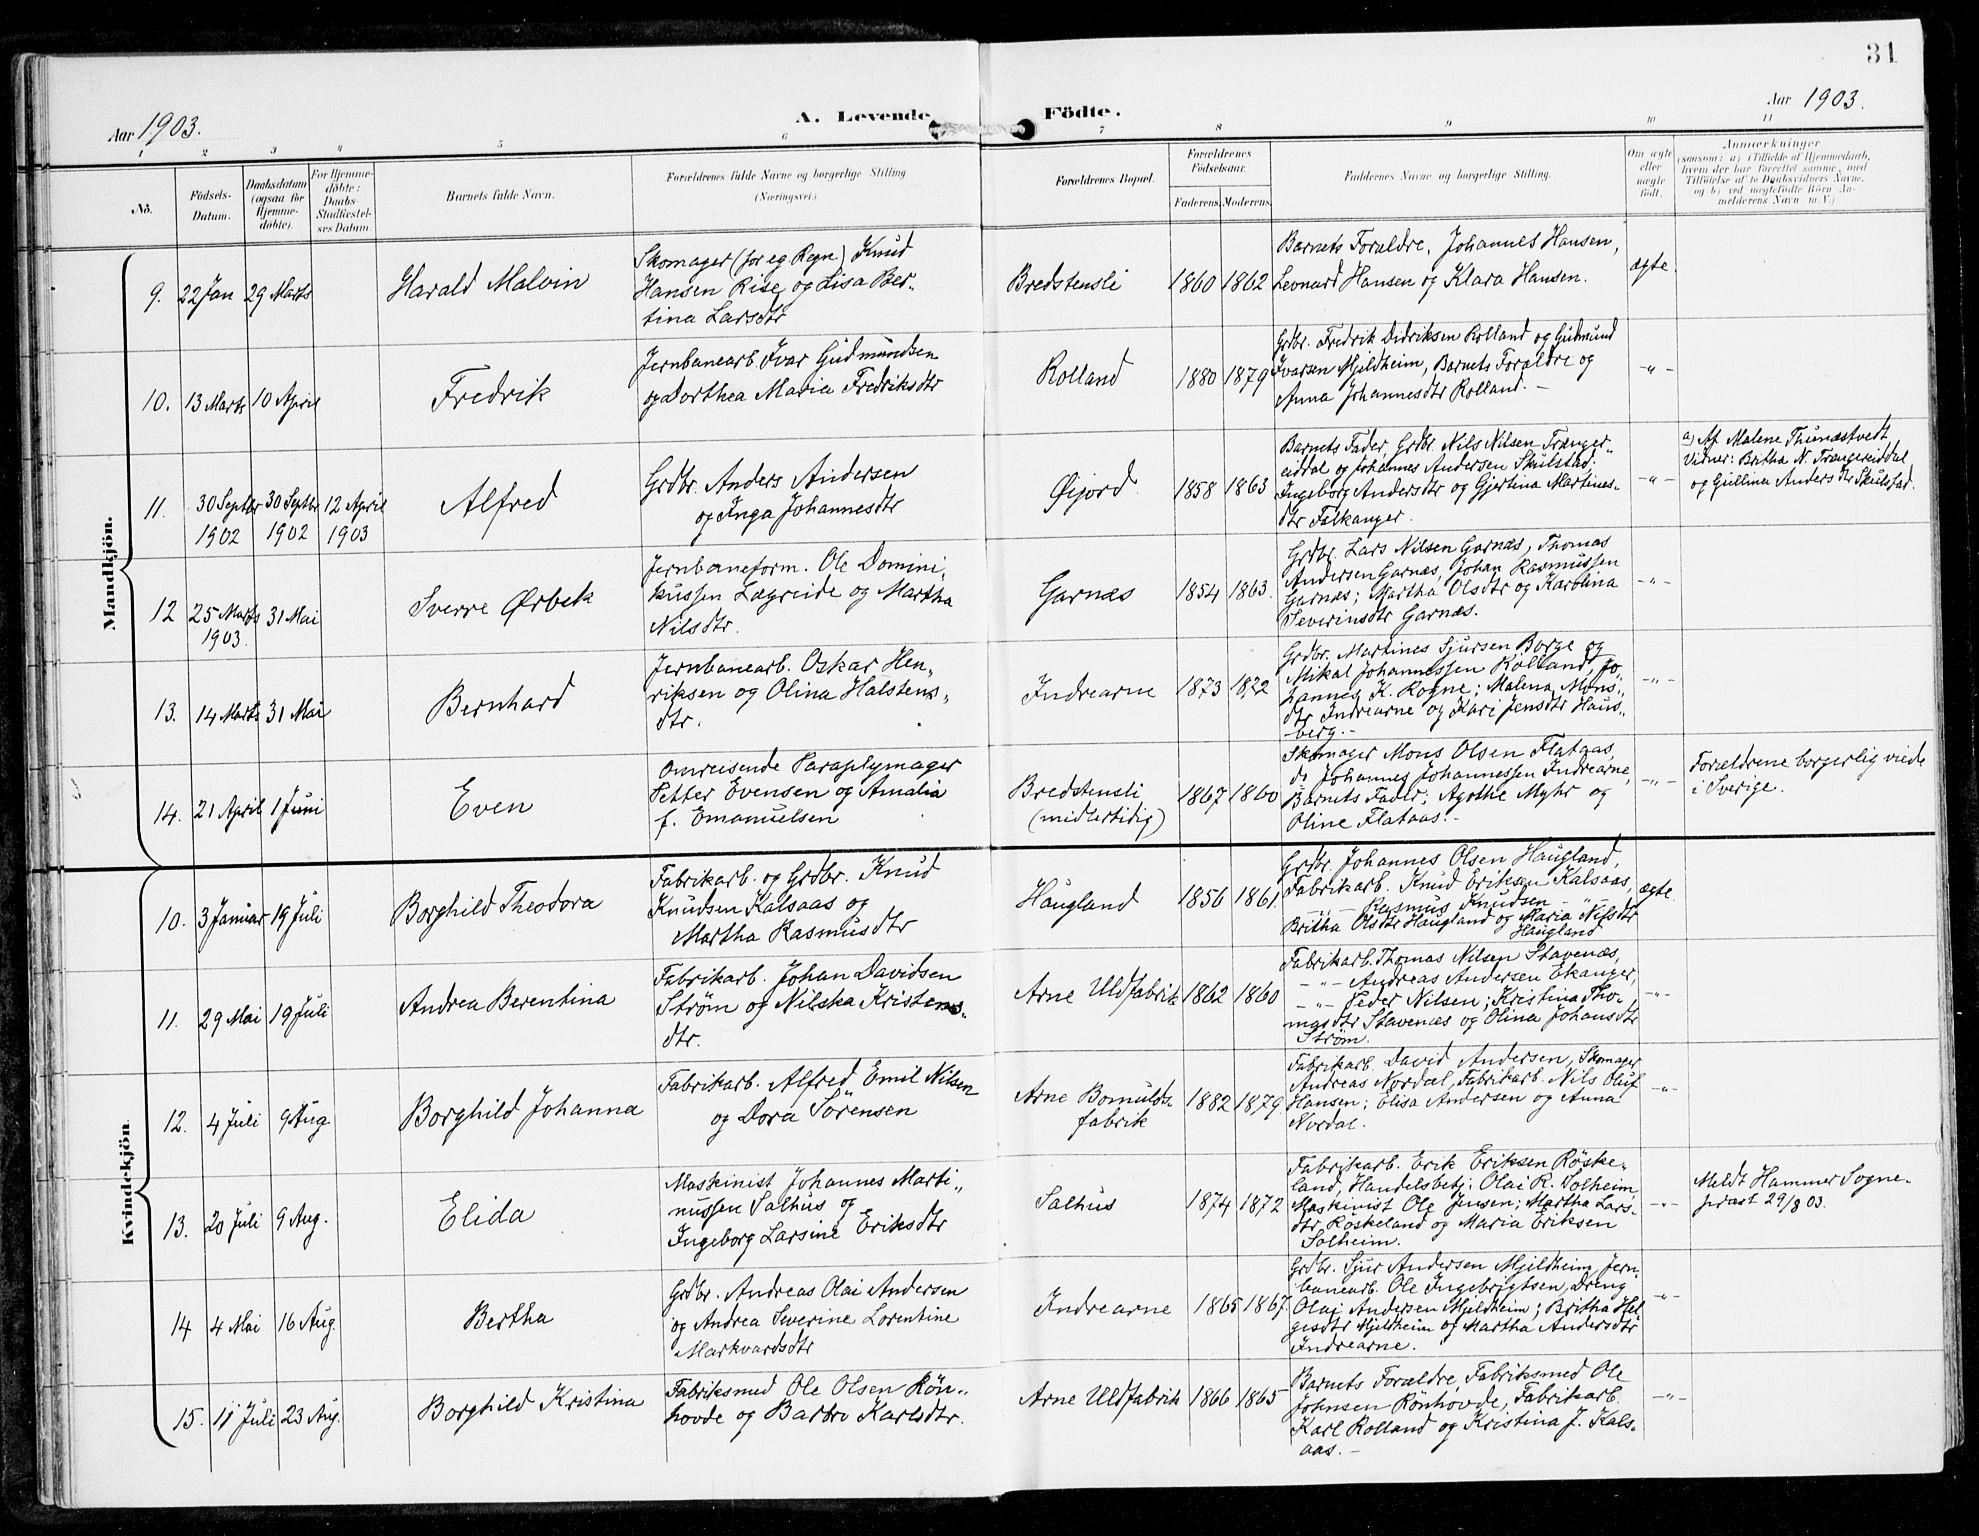 31
Aar 1903.
A. Levende Födte.
Aar 1903.
1 2 3 4 5 6 7 8 9 10 11
No.
Födsels-
Datum.
Daabsdatum
(ogsaa for
Hjemme-
döbte).
For Hjemme-
döbte:
Daabs-
Stadfæstel-
ses Datum.
Barnets fulde Navn.
Forældrenes fulde Navne og borgerlige Stilling
(Næringsvei.)
Forældrenes Bopæl.
Forældrenes
Födselsaar.
Faderens. Moderens.
Faddernes Navne og borgerlige Stilling.
Om ægte
eller
uægte
födt.
Anmærkninger
(saasom: a) i Tilfælde af Hjemmedaab,
hvem der har forrettet samme, med
Tilföielse af to Daabsvidners Navne,
og b) ved uægtefödte Börn An-
melderens Navn m.V.)
Mandkjön.
9. 22 Jan 29 Marts
Harald Malvin
Skomager (for eg Regn.) Knud
Hansen Rise og Lisa Ber-
tina Larsdtr
Bredstensli
1860 1862
Barnets Foraldre, Johannes Hansen,
Leonard Hansen og Klara Hansen.
ægte
10. 13 Marts 10 April
Fredrik
Jernbanearb. Ivar Gudmundsen
og Dorthea Maria Fredriksdtr
Rolland
1880 1879
Grdbr. Fredrik Didriksen Rolland og Gudmund
Ivarsen Mjeldheim, Barnets Foraldre og
Anna Johannesdtr Rolland. -
-"-
11. 30 Septbr 30 Septbr 12 April
1902 1902 1903
Alfred
Grdbr. Anders Andersen
og Inga Johannesdtr
Øijord.
1858 1863
Barnets Fader, Grdbr. Nils Nilsen Trænger-
eiddal og Johannes Andersen Skulstad;
Ingeborg Andersdtr og Gjertina Martines-
dtr Falkanger.
-"-
a) Af Malene Thunæstvedt
Vidner: Britha N. Trængereiddal
og Gullina Andersdtr Skulstad.
12 25 Marts 31 Mai
1903.
Sverre Ørbek
Jernbaneform. Ole Domini-
kussen Lægreide og Martha
Nilsdtr.
Garnæs
1854 1863.
Grdbr. Lars Nilsen Garnæs, Thomas
Andersen Garnæs, Johan Rasmussen
Garnæs; Martha Olsdtr og Karolina
Severinsdtr Garnæs.
-"-
13. 14 Marts 31 Mai
Bernhard
Jernbanearb. Oskar Hen-
riksen og Olina Halstens-
dtr.
Indrearne
1873 1872
Grdbr. Martines Sjursen Borge og
Mikal Johannessen Rolland, Jo-
hannes K. Rogne; Malena Mons-
dtr Indrearne og Kari Jensdtr Haus-
berg. -
-"-
14. 21 April 1 Juni
Even
Omreisende Paraplymager
Petter Evensen og Amalia
f. Emanuelsen
Bredstensli
(midlertidig)
1867 1860
Skomager Mons Olsen Flataas,
do Johannes Johannessen Indrearne,
Barnets Fader; Agothe Myhr og
Oline Flataas. -
-"-
Forældrene borgerlig viede
i Sverige.
Kvindekjön.
10. 3 Januar 19 Juli
Borghild Theodora
Fabrikarb. og Grdbr. Knud
Knudsen Kalsaas og
Martha Rasmusdtr
Haugland
1856 1861.
Grdbr Johannes Olsen Haugland,
Fabrikarb. Knud Eriksen Kalsaas,
-"- Rasmus Knudsen -"-
Britha Olsdtr Haugland og Maria Nilsdtr
Haugland
ægte
11. 29 Mai 19 Juli
Andrea Berentina
Fabrikarb. Johan Davidsen
Strøm og Nilska Kristens-
dtr.
Arne Uldfabrik
1862 1860
Fabrikarb. Thomas Nilsen Stavenæs,
-"- Andreas Andersen Ekanger,
-"- Peder Nilsen; Kristina Tho-
masdtr Stavenæs og Olina Johansdtr
Strøm.
-"-
12. 4 Juli 9 Aug
Borghild Johanna
Fabrikarb. Alfred Emil Nilsen
og Dora Sörensen
Arne Bomulds-
fabrik
1882 1879.
Fabrikarb. David Andersen, Skomager
Andreas Nordal, Fabrikarb. Nils Oluf
Hansen; Elisa Andersen og Anna
Nordal.
-"-
13. 20 Juli 9 Aug.
Elida
Maskinist Johannes Marti-
nussen Salhus og
Ingeborg Larsine Eriksdtr
Salhus
1874 1872
Fabrikarb. Erik Eriksen Röske-
land, Handelsbetj. Olai R. Solheim,
Maskinist Ole Jensen; Martha Lars-
dtr Röskeland og Maria Eriksen
Solheim.
-"-
Meldt Hammer Sogne-
prast 29/8 03.
14 4 Mai 16 Aug.
Bertha
Grdbr. Andreas Olai Andersen
og Andrea Severine Lorentine
Markvardsdtr
Indrearne
1865 1867.
Grdbr. Sjur Andersen Mjeldheim, Jern-
banearb. Ole Ingebrigtsen, Dreng
Olai Andersen Mjeldheim; Britha Hel
gesdtr Mjeldheim og Martha Andersdtr
Indrearne.
-"-
15. 11 Juli 23 Aug.
Borghild Kristina
Fabriksmed Ole Olsen Rön-
hovde og Barbro Karlsdtr.
Arne Uldfabrik
1866 1865
Barnets Forældre, Fabriksmed Ole
Johnsen Rönhovde, Fabrikarb.
Karl Rolland og Kristina J. Kals-
aas. -
-"-